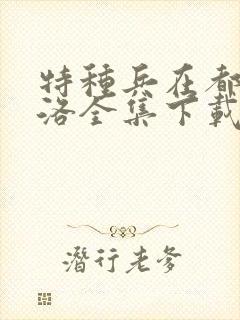 特種兵在都
洛全集下載
潛行老爹